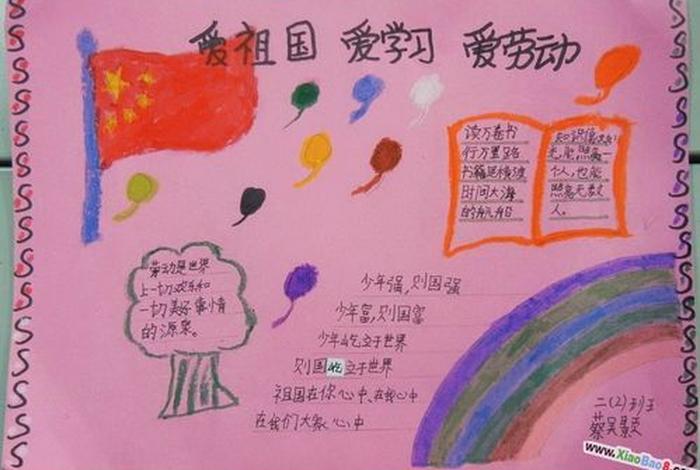 爱祖国 爱学习 爱劳动
读万卷书
行万里路
书籍是横渡
时间大海
的航船
知识像烛光,
光能照亮一
个人,也能
照亮无数
人。
劳动是世界
上一切欢乐和
一切美好事情
的源泉。
少年强,则国强
少年富,则国富
少年屹立于世界
则国屹立于世界
祖国在你心中、在我心中
在我们大家心中
二(2)班
蔡昊颢
www.XiaoBao8.